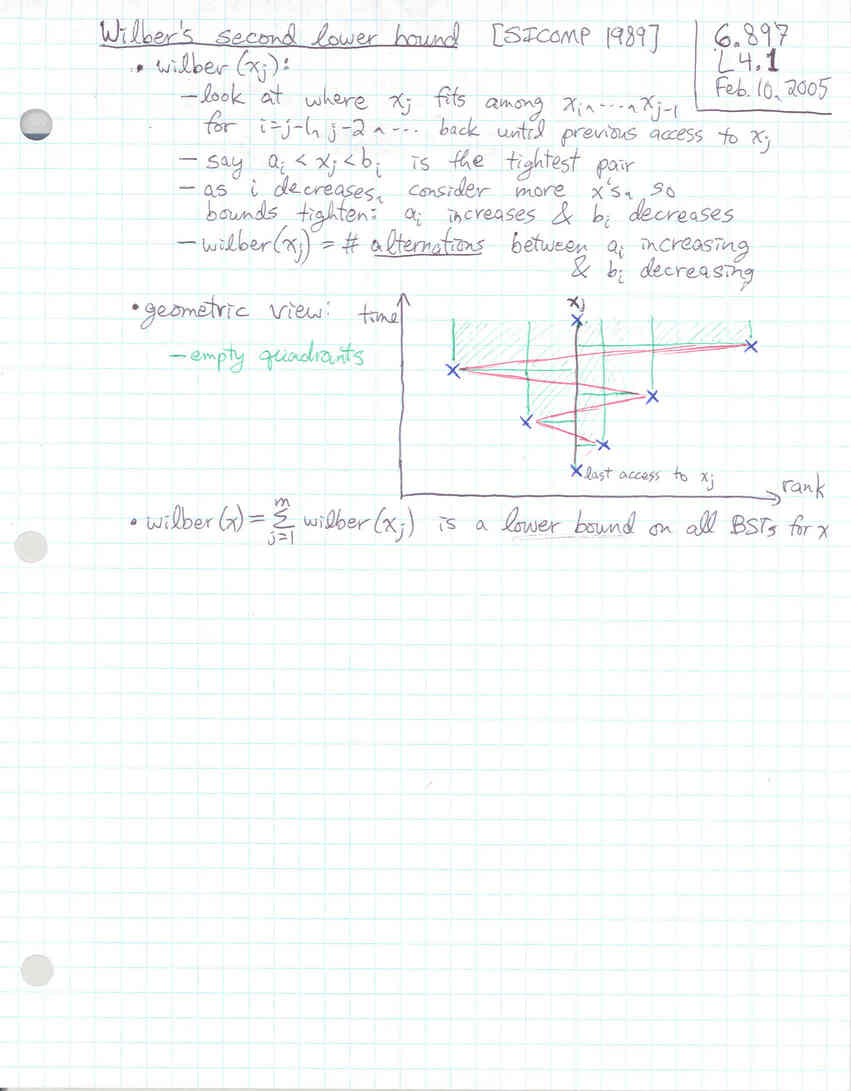 Wilber's second lower bound [SICOMP 1989]
6.897
L4.1
Feb. 10, 2005
• wilber(xj):
– look at where xj fits among xi, ..., xj-1
for i=j-1, j-2, ... back until previous access to xj
– say ai < xj < bi is the tightest pair
– as i decreases, consider more x's, so
bounds tighten: ai increases & bi decreases
– wilber(xj) = # alternations between ai increasing
& bi decreasing
• geometric view:
time
xj
– empty quadrants
last access to xj
rank
• wilber(x) = Σ_{j=1}^{m} wilber(xj) is a lower bound on all BSTs for x